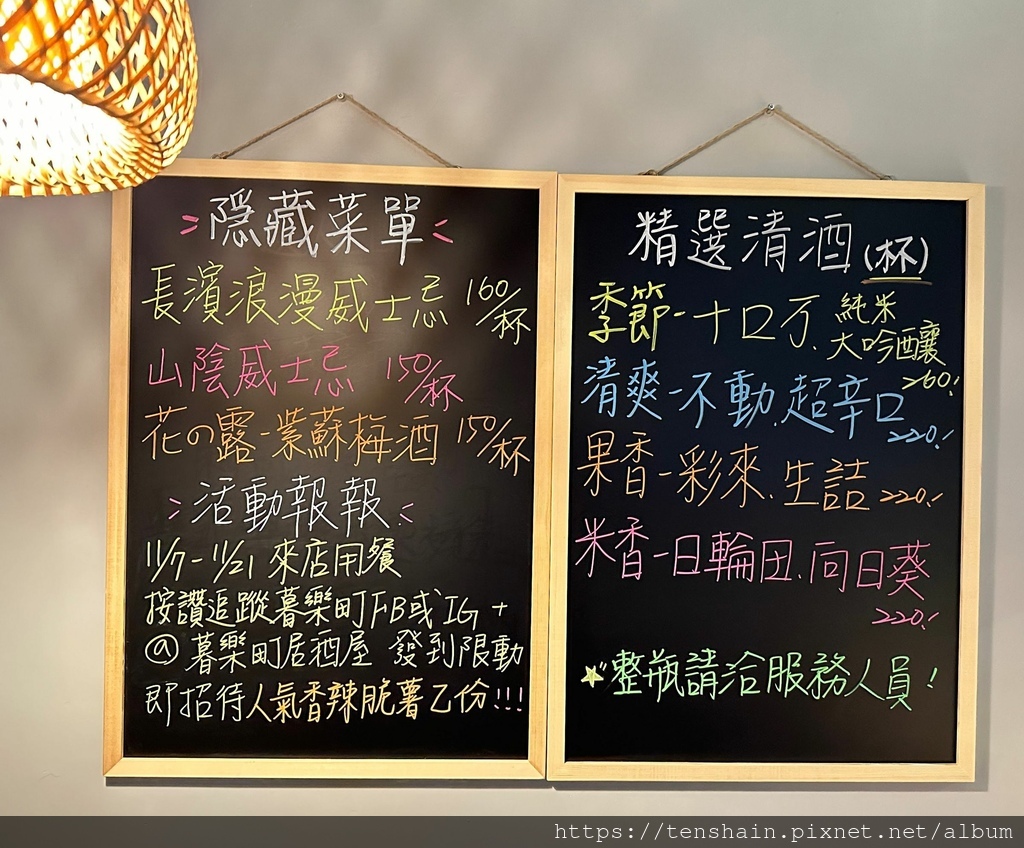 隱藏菜單
長濱浪漫威士忌 160/杯
山陰威士忌 150/杯
花の露-紫蘇梅酒 150/杯
活動報報
11/7-11/21 來店用餐
按讚追蹤暮樂町FB或IG+
@暮樂町居酒屋 發到限動
即招待人氣香辣脆薯乙份!!!
精選清酒(杯)
季節-十口万.純米
大吟釀
260.-
清爽-不動.超辛口
220.-
果香-彩來.生詰 220.-
米香-日輪田.向日葵
220.-
整瓶請洽服務人員!
https://tenshain.pixnet.net/album